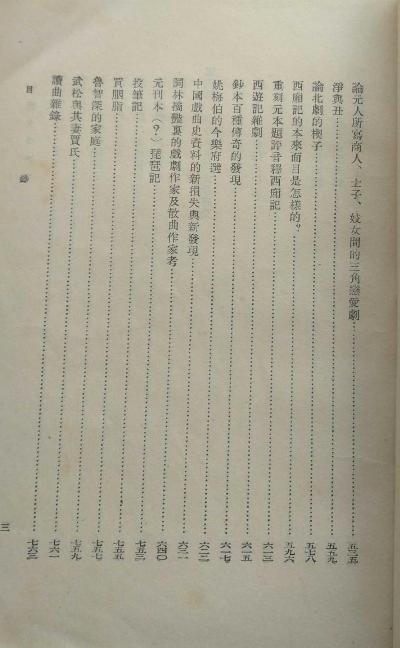 論元人所寫商人、士子、妓女間的三角戀愛劇……五三五
淨與丑……五五九
論北劇的楔子……五七八
西廂記的本來面目是怎樣的?……五九六
重刻元本題評音釋西廂記……六一三
西遊記雜劇……六一五
鈔本百種傳奇的發現……六一七
姚梅伯的今樂府選……
中國戲曲史資料的新損失與新發現……
詞林摘艷裏的戲劇作家及散曲作家考……六四〇
元刊本(?)琵琶記……七五三
投筆記……七五五
賈胭脂……七五七
魯智深的家庭……七五九
武松與其妻賈氏……七六一
讀曲雜錄……七六三
目錄
三